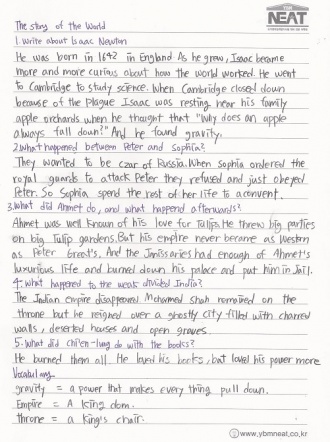 YBM
NEAT
The story of the World
1. Write about Isaac Newton
He was born in 1642 in England As he grew, Isaac became
more and more curious about how the world worked. He went
to Cambridge to study science. When Cambridge closed down
because of the Plague Isaac was resting near his family
apple orchards when he thought that "Why does an apple
always fall down?" And he found gravity.
2. What happened between Peter and Sophia?
They wanted to be czar of Russia. When Sophia ordered the
royal guards to attack Peter they refused and just obeyed
Peter. So Sophia spend the rest of her life to a convent.
3. What did Ahmet do, and what happend afterwards?
Ahmet was well known of his love for Tulips. He threw big parties
on big Tulip gardens. But his empire never became as Western
as Peter Great's. And the Janissaries had enough of Ahmet's
luxurious life and burned down his palace and put him in Jail.
4. What happened to the weak divided India?
The Indian empire disappeared Mohamed Shah remained on the
throne but he reigned over a ghostly city filled with charred
walls, deserted houses and open graves.
5. What did chi'en-lung do with the books?
He burned them all. He loved his books, but loved his power more
Vocabulary
gravity = a power that makes every thing pull down.
Empire = A king dom.
throne = a king's chair.
www.ybmneat.co.kr